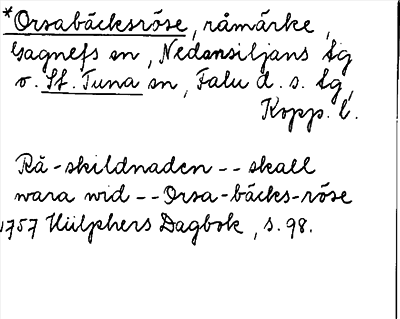 *Orsabäcksröse, råmärke,
Gagnefs sn, Nedansiljans tg
o. St. Tuna sn, Falu d. s. tg,
Kopp. l.
Rå-skildnaden -- skall
wara wid -- Orsa-bäcks-röse
1757 Hülphers Dagbok, s. 98.